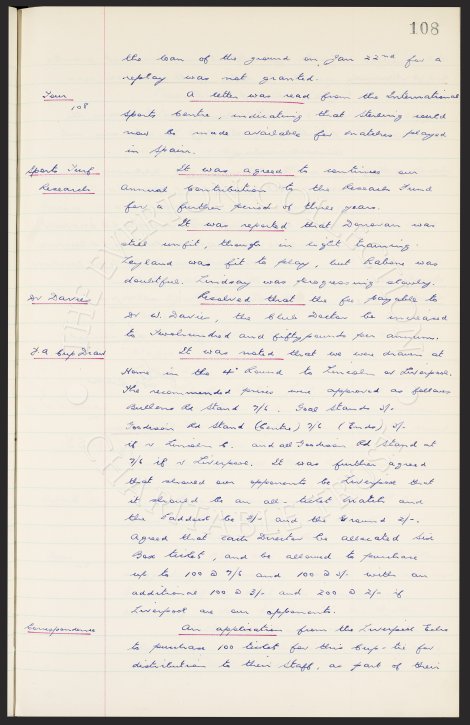 108
the loan of the ground on Jan 22nd for a
replay was not granted.
Tour
108
A letter was read from the International
Sports Centre, indicating that sterling would
now be made available for matches played
in Spain.
Sports Turf
Research
It was agreed to continue our
annual contribution to the Research Fund
for a further period of three years.
It was reported that Donovan was
still unfit, though in light training.
Leyland was fit to play, but Rabone was
doubtful. Lindsay was progressing slowly.
Dr Davies
Resolved that the fee payable to
Dr W. Davies, the Club Doctor be increased
to Twohundred and fifty pounds per annum.
F.A Cup Draw
It was noted that we were drawn at
Home in the 4th Round to Lincoln or Liverpool.
The recommended prices were approved as follows
Bullens Rd Stand 7/6. Goal Stands 5/-
Goodison Rd Stand (Centre) 7/6 (Ends) 5/-
if v Lincoln C. and all Goodison Rd Stand at
7/6 if v Liverpool. It was further agreed
that should our opponents be Liverpool that
it should be an all-ticket match and
the Paddock be 3/- and the Ground 2/-.
Agreed that each Director be allocated six
Box tickets, and be allowed to purchase
up to 100 @ 7/6 and 100 @ 5/- with an
additional 100 @ 3/- and 200 @ 2/- if
Liverpool are our opponents.
Correspondence
An application from the Liverpool Echo
to purchase 100 tickets for this Cup-tie for
distribution to their Staff, as part of their